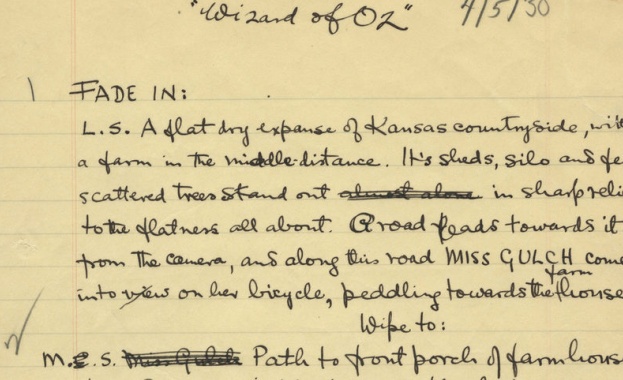 "Wizard of OZ" 4/5/38
1 FADE IN:
L.S. A flat dry expanse of Kansas countryside, with
a farm in the middle distance. It's sheds, silo and fe
scattered trees stand out almost alone in sharp reli
to the flatness all about. A road leads towards it
from the camera, and along this road MISS GULCH come
farm
into view on her bicycle, peddling towards the house
Wipe to:
M.S. Miss Gulch Path to front porch of farmhous